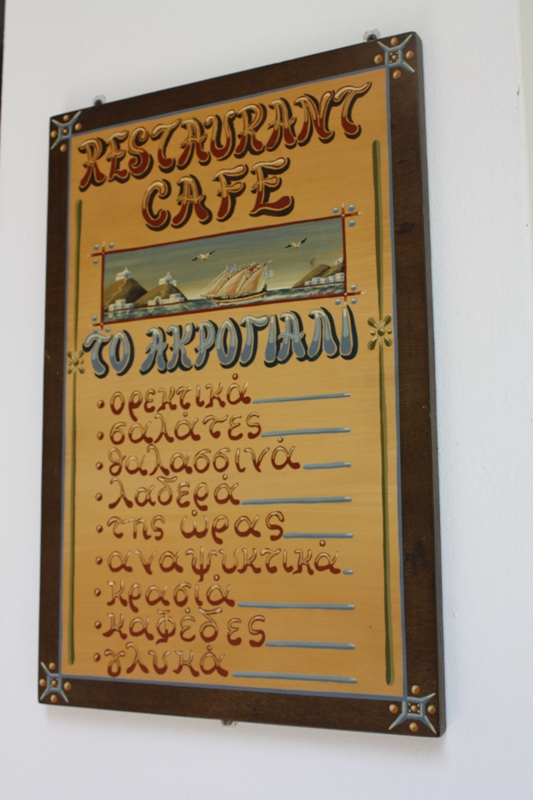 RESTAURANT
CAFE
ΤΟ ΑΚΡΟΓΙΑΛΙ
·ορεκτικά
·σαλάτες
·θαλασσινά
·λαδερά
·της ώρας
·αναψυκτικά
·κρασιά
·καφέδες
·γλυκά